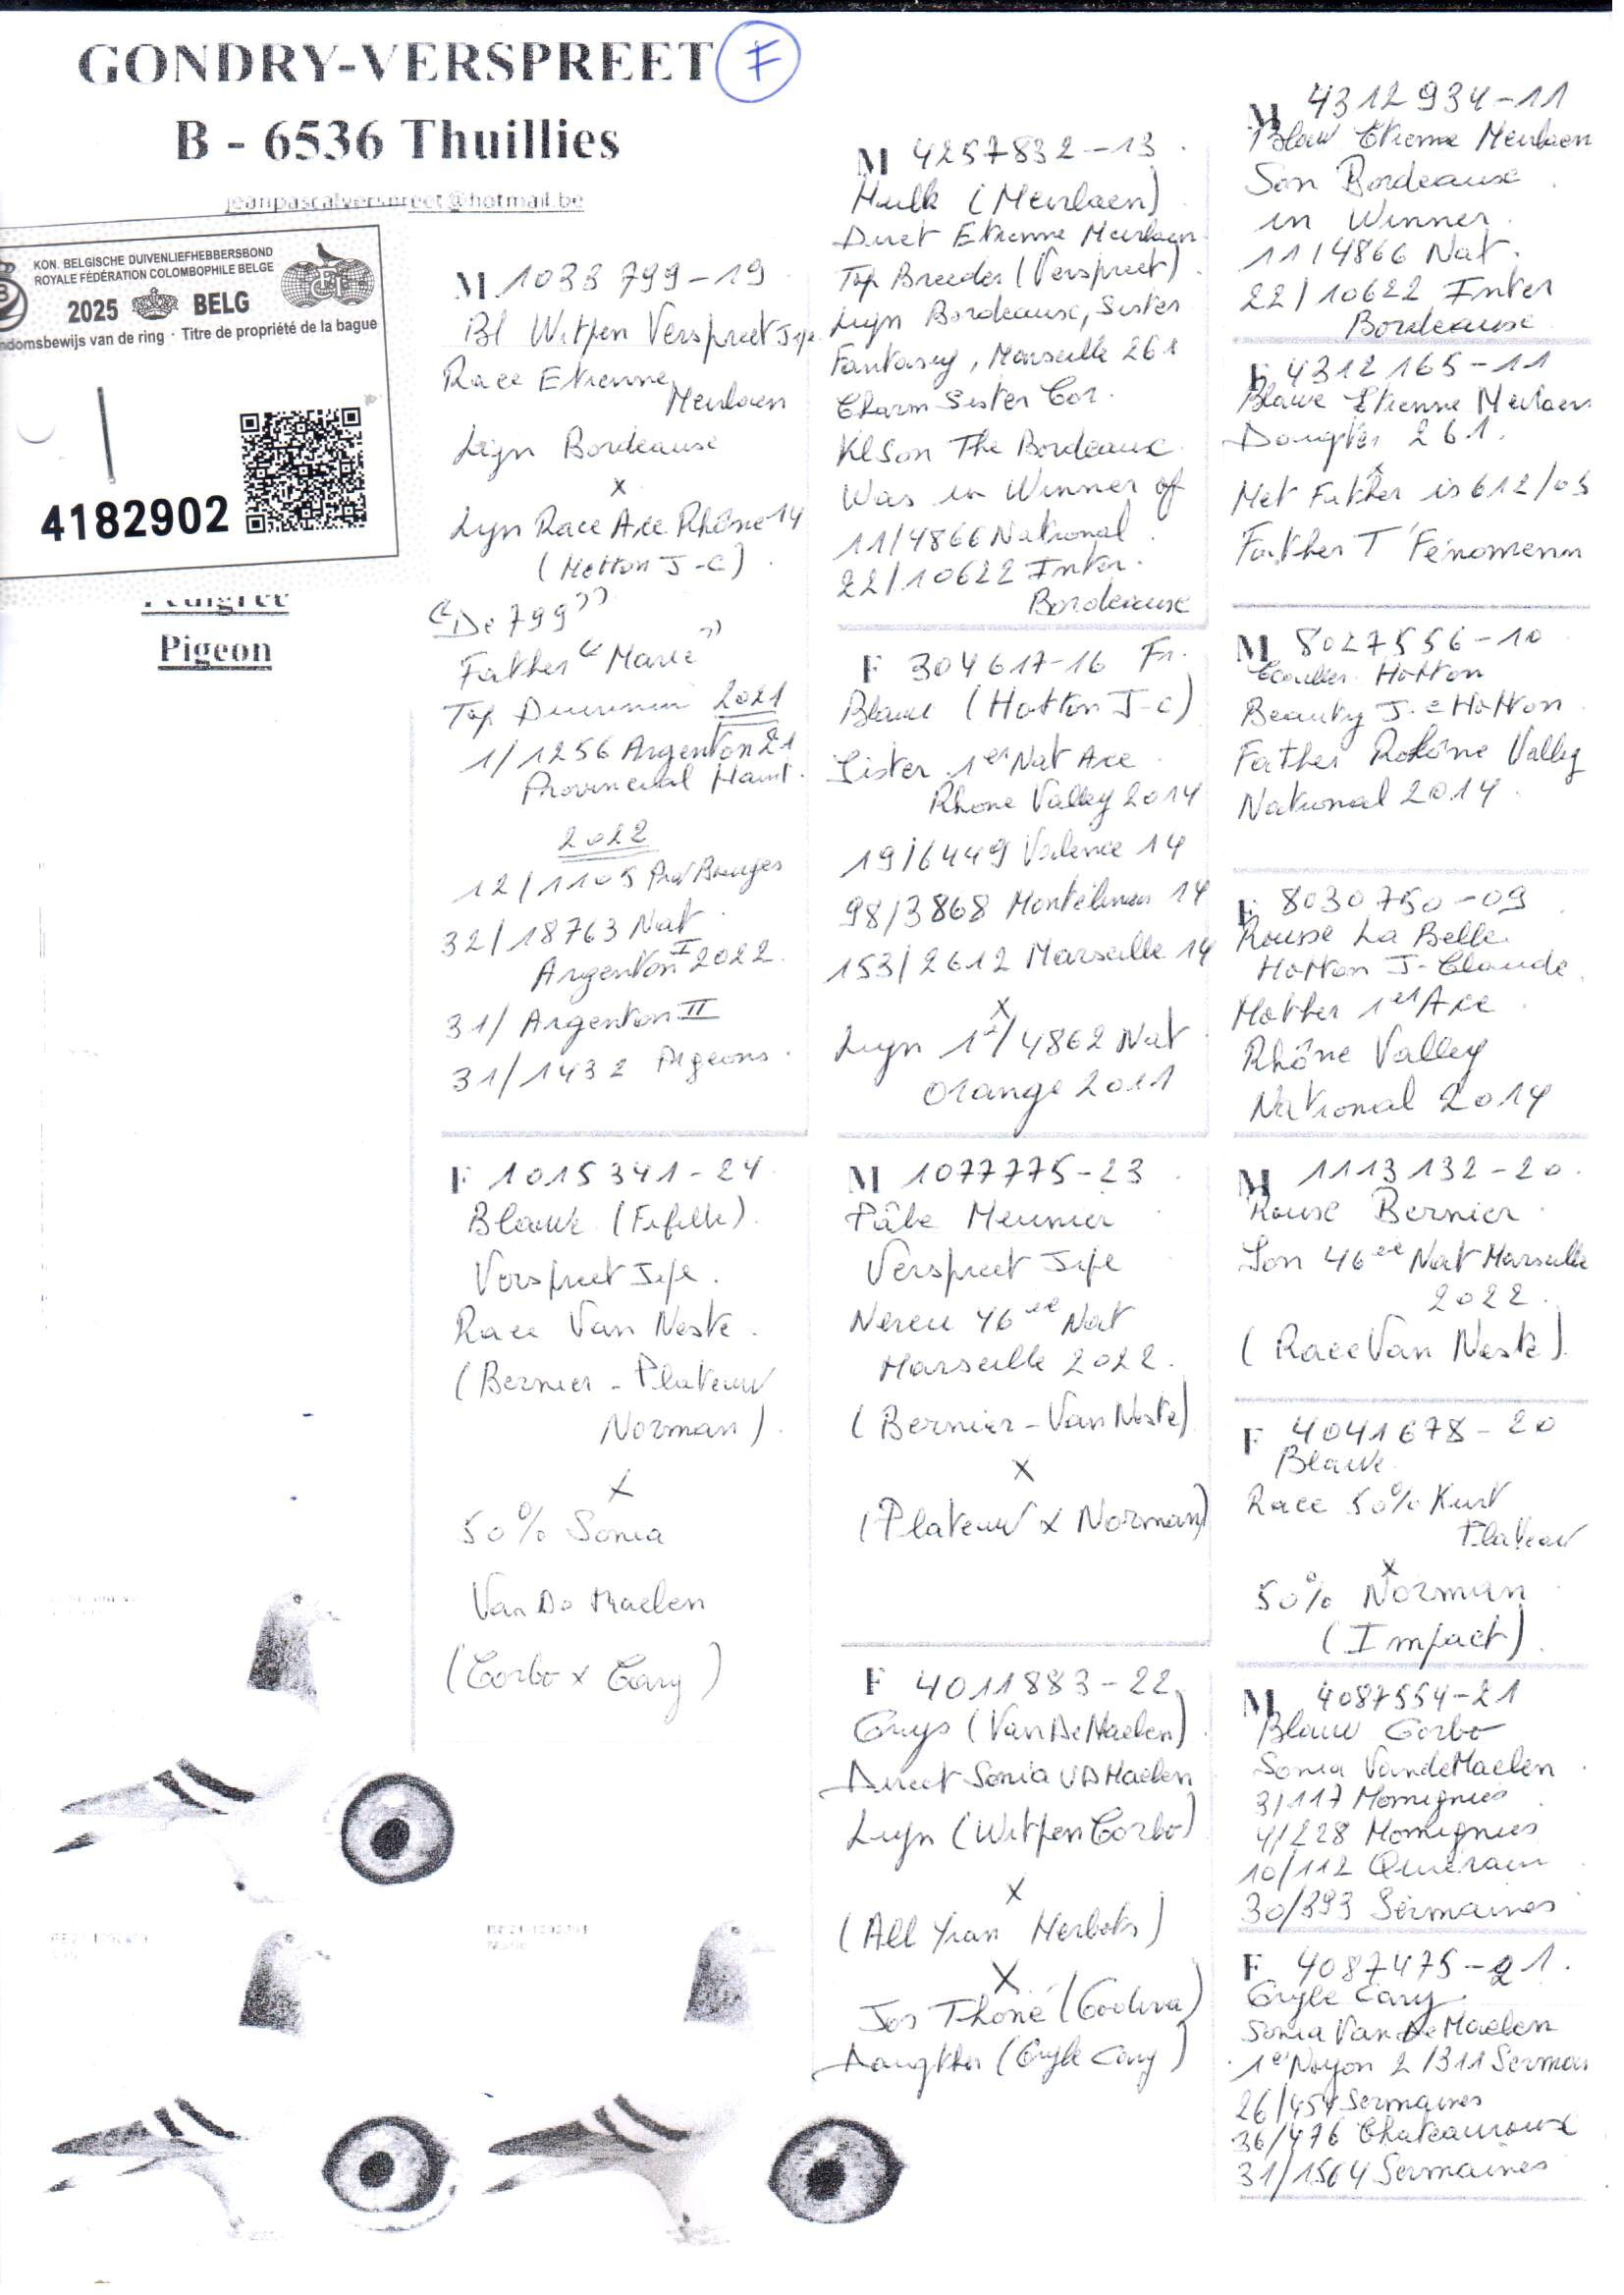 GONDRY-VERSPREET F
B - 6536 Thuillies
jeanpascalverspreet@hotmail.be
KON. BELGISCHE DUIVENLIEFHEBBERSBOND
ROYALE FÉDÉRATION COLOMBOPHILE BELGE
2025 BELG
ndomsbewijs van de ring · Titre de propriété de la bague
4182902
Pedigree
Pigeon
M 1033799-19
Bl Witpen Verspreet Jipe
Race Etienne
Meulaen
Lign Bordeause
x
Lyn Race Ace Rhône 14
(Hotton J-C)
"De 799"
Father "Marie"
Top 2021
1/1256 Argenton 21
Provincial Haint.
2022
12/1105 Prov Bourges
32/18763 Nat
Argenton I 2022
31/ Argenton II
31/1432 Pigeons
F 1015341-24
Blauw (Fifille)
Verspreet Jipe
Race Van Neste
(Bernier - Plateauw
Norman)
x
50% Sonia
Van De Maelen
(Corbo x Cary)
M 4257832-13
Hulk (Meulaen)
Direct Etienne Meulaen
Top Breeder (Verspreet)
Lyn Bordeause, Sister
Fantasy, Marseille 261
Charm Sister Cor.
Kl Son The Bordeaux
Was in Winner of
11/4866 National
22/10622 Inter.
Bordeause
F 304617-16 Fr.
Blauw (Hotton J-C)
Sister 1er Nat Ace
Rhone Valley 2014
19/6449 Valence 14
98/3868 Montélimar 14
153/2612 Marseille 14
x
Lyn 1er/4862 Nat
Orange 2011
M 1077775-23
Pâle Meunier
Verspreet Jipe
Neveu 46ee Nat
Marseille 2022
(Bernier - Van Neste)
x
(Plateauw x Norman)
F 4011883-22
Gruys (Van De Maelen)
Direct Sonia VD Maelen
Lijn (Witpen Corbo)
x
(All Yvan Herbots)
x
Jos Thoné (Godiva)
Daugther (Gryle Cary)
M 4312934-11
Blauw Etienne Meulaen
Son Bordeause
in Winner
11/4866 Nat.
22/10622 Inter
Bordeause
F 4312165-11
Blauwe Etienne Meulaen
Daugter 261.
x
Met Father is 612/05
Father T' Fénomenn
M 8027556-10
Ecailler Hotton
Beauty J-C Hotton
Father Rohône Valley
National 2014
F 8030750-09
Rousse La Belle
Hotton J-Claude
Mother 1er Ace
Rhône Valley
National 2014
M 1113132-20
Rouse Bernier
Son 46ee Nat Marseille
2022
(Race Van Neste)
F 4041678-20
Blauwe
Race 50% Kurt
Plateau
x
50% Norman
(Impact)
M 4087554-21
Blauw Corbo
Sonia Van de Maelen
3/117 Momignies
4/228 Momignies
10/112 Quievrain
30/393 Sermaines
F 4087475-21
Gryle Cary
Sonia Van De Maelen
1er Noyon 2/311 Sermai
26/454 Sermaines
36/476 Chateauroux
31/1564 Sermaines